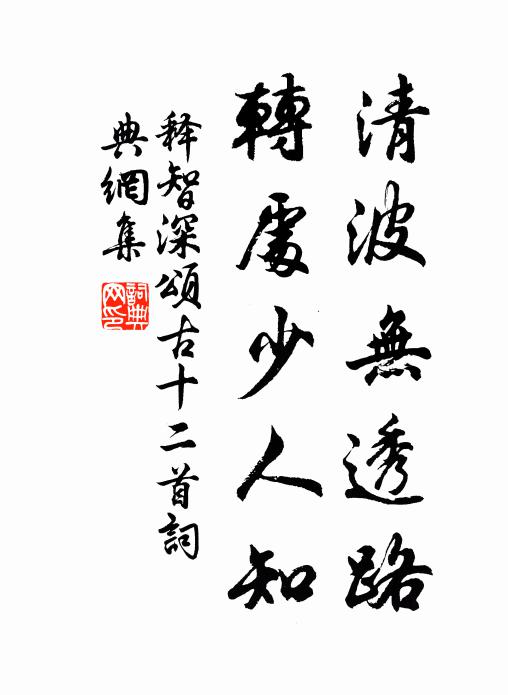 清波無透路
轉處少人知
释智深頌古十二首詞
典網集
詞典網印